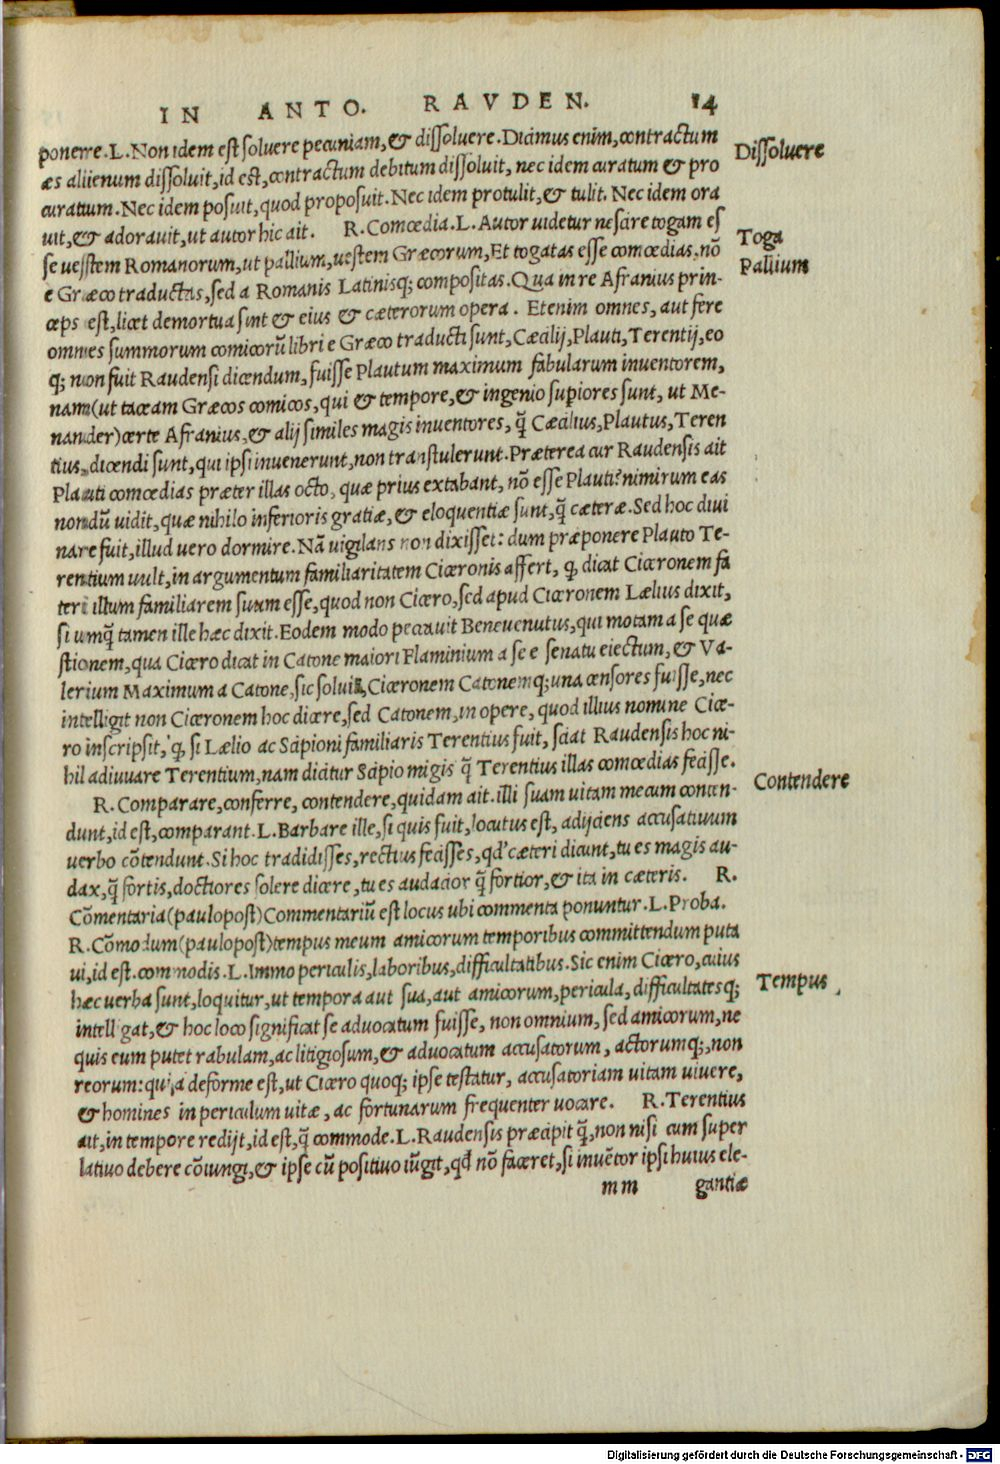 IN ANTO. RAVDEN. 14
ponere. L. Non idem est soluere pecuniam, & dissoluere. Dicimus enim, contractum
æs allienum dissoluit, id est, contractum debitum dissoluit, nec idem curatum & pro
curatum. Nec idem posuit, quod proposuit. Nec idem protulit, & tulit. Nec idem ora
uit, & adorauit, ut autor hic ait. R. Comœdia. L. Autor uidetur nescire togam es
se uesstem Romanorum, ut pallium, uestem Græcorum, Et togatas esse comœdias, nō
e Græco traductas, sed a Romanis Latinisq; compositas. Qua in re Afranius prin-
ceps est, licet demortua sint & eius & cæterorum opera. Etenim omnes, aut fere
omnes summorum comicorū libri e Græco traducti sunt, Cæcilij, Plauti, Terentij, eo
q; non fuit Raudensi dicendum, fuisse Plautum maximum fabularum inuentorem,
nam (ut taceam Græcos comicos, qui & tempore, & ingenio supiores sunt, ut Me-
nander) certe Afranius, & alij similes magis inuentores, q̃ Cæcilius, Plautus, Teren
tius, dicendi sunt, qui ipsi inuenerunt, non transtulerunt. Præterea cur Raudensis ait
Plauti comœdias præter illas octo, quæ prius extabant, nō esse Plauti? nimirum eas
nondū uidit, quæ nihilo inferioris gratiæ, & eloquentiæ sunt, q̃ cæteræ. Sed hoc diui
nare fuit, illud uero dormire. Nā uigilans non dixisset: dum præponere Plauto Te-
rentium uult, in argumentum familiaritatem Ciceronis affert, q, dicat Ciceronem fa
teri illum familiarem suum esse, quod non Cicero, sed apud Ciceronem Lælius dixit,
si umq̃ tamen ille hæc dixit. Eodem modo peccauit Beneuenutus, qui motam a se quæ
stionem, qua Cicero dicat in Catone maiori Flaminium a se e senatu eiectum, & Va-
lerium Maximum a Catone, sic soluit, Ciceronem Catonemq; una censores fuisse, nec
intelligit non Ciceronem hoc dicere, sed Catonem, in opere, quod illius nomine Cice-
ro inscripsit, q, si Lælio ac Scipioni familiaris Terentius fuit, sciat Raudensis hoc ni-
hil adiuuare Terentium, nam dicitur Scipio migis q̃ Terentius illas comœdias fecisse.
R. Comparare, conferre, contendere, quidam ait. illi suam uitam mecum conten-
dunt, id est, comparant. L. Barbare ille, si quis fuit, locutus est, adijciens accusatiuum
uerbo cōtendunt. Si hoc tradidisses, rectius fecisses, qd' cæteri dicunt, tu es magis au-
dax, q̃ fortis, doctiores solere dicere, tu es audacior q̃ fortior, & ita in cæteris. R.
Cōmentaria (paulopost) Commentariū est locus ubi commenta ponuntur. L. Proba.
R. Cōmodum (paulopost) tempus meum amicorum temporibus committendum puta
ui, id est. commodis. L. Immo periculis, laboribus, difficultatibus. Sic enim Cicero, cuius
hæc uerba sunt, loquitur, ut tempora aut sua, aut amicorum, pericula, difficultatesq;
intell gat, & hoc loco significat se aduocatum fuisse, non omnium, sed amicorum, ne
quis eum putet rabulam, ac litigiosum, & aduocatum accusatorum, actorumq;, non
reorum: quia deforme est, ut Cicero quoq; ipse testatur, accusatoriam uitam uiuere,
& homines in periculum uitæ, ac fortunarum frequenter uocare. R. Terentius
ait, in tempore redijt, id est, q̃ commode. L. Raudensis præcipit q̃, non nisi cum super
latiuo debere cōiungi, & ipse cū positiuo iūgit, qđ nō faceret, si inuētor ipsi huius ele-
mm gantiæ
Dissoluere
Toga
Pallium
Contendere
Tempus
Digitalisierung gefördert durch die Deutsche Forschungsgemeinschaft - DFG